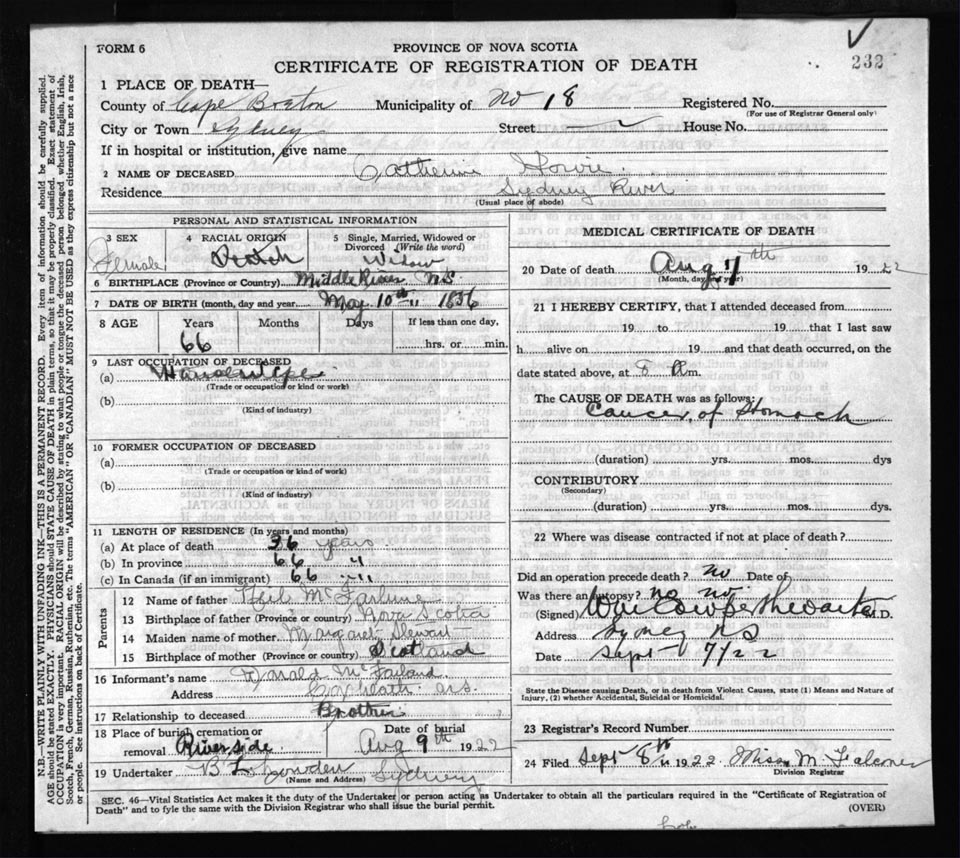 FORM 6
PROVINCE OF NOVA SCOTIA
CERTIFICATE OF REGISTRATION OF DEATH
232
1 PLACE OF DEATH—
County of Cape Breton Municipality of No 18 Registered No.
(For use of Registrar General only)
City or Town Sydney Street House No.
If in hospital or institution, give name
2 NAME OF DECEASED Catherine Howie
Residence Sydney River
(Usual place of abode)
PERSONAL AND STATISTICAL INFORMATION
3 SEX 4 RACIAL ORIGIN 5 Single, Married, Widowed or Divorced (Write the word)
Female Scotch Widow
6 BIRTHPLACE (Province or Country) Middle River N.S.
7 DATE OF BIRTH (month, day and year) May 10th 1856
8 AGE Years Months Days If less than one day,
66 hrs. or min.
9 LAST OCCUPATION OF DECEASED
(a) Housewife
(Trade or occupation or kind of work)
(b)
(Kind of industry)
10 FORMER OCCUPATION OF DECEASED
(a)
(Trade or occupation or kind of work)
(b)
(Kind of industry)
11 LENGTH OF RESIDENCE (In years and months)
(a) At place of death 36 years
(b) In province 66 "
(c) In Canada (if an immigrant) 66 "
Parents
12 Name of father Neil McFarlane
13 Birthplace of father (Province or country) Nova Scotia
14 Maiden name of mother Margaret Stewart
15 Birthplace of mother (Province or country) Scotland
16 Informant's name Donald McFarland
Address Coxheath N.S.
17 Relationship to deceased Brother
18 Place of burial, cremation or removal Riverside Date of burial Aug 9th 1922
19 Undertaker Sydney
(Name and Address)
MEDICAL CERTIFICATE OF DEATH
20 Date of death Aug 7th 1922
(Month, day, year)
21 I HEREBY CERTIFY, that I attended deceased from
19 to 19 that I last saw
h alive on 19 and that death occurred, on the
date stated above, at 8 m.
The CAUSE OF DEATH was as follows:
Cancer of Stomach
(duration) yrs. mos. dys
CONTRIBUTORY
(Secondary)
(duration) yrs. mos. dys.
22 Where was disease contracted if not at place of death?
Did an operation precede death? no Date of
Was there an autopsy? no no
(Signed) M.D.
Address Sydney NS
Date Sept 7/22
State the Disease causing Death, or in death from Violent Causes, state (1) Means and Nature of
Injury, (2) whether Accidental, Suicidal or Homicidal.
23 Registrar's Record Number
24 Filed Sept 8th 1922 Miss M Falconer
Division Registrar
SEC. 46—Vital Statistics Act makes it the duty of the Undertaker or person acting as Undertaker to obtain all the particulars required in the "Certificate of Registration of
Death" and to fyle the same with the Division Registrar who shall issue the burial permit. (OVER)
N.B.—WRITE PLAINLY WITH UNFADING INK—THIS IS A PERMANENT RECORD. Every item of information should be carefully supplied.
AGE should be stated EXACTLY. PHYSICIANS should STATE CAUSE OF DEATH in plain terms, so that it may be properly classified. Exact statement of
OCCUPATION is very important. RACIAL ORIGIN will be described by stating to what people or tongue the deceased person belonged whether English, Irish,
Scotch, French, German, Russian, Ruthenian, etc. The terms "AMERICAN" OR "CANADIAN" MUST NOT BE USED as they express citizenship but not a race
or people. See instructions on back of Certificate.